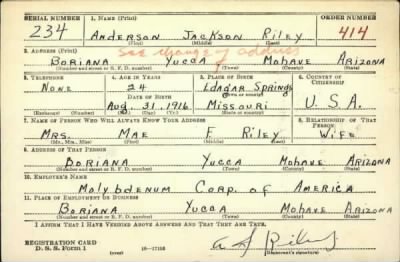 SERIAL NUMBER 1. NAME (Print) ORDER NUMBER
234 Anderson Jackson Riley 414
(First) (Middle) (Last)
2. ADDRESS (Print) See change of address
Boriana Yucca Mohave Arizona
(Number and street or R. F. D. number) (Town) (County) (State)
3. TELEPHONE 4. AGE IN YEARS 5. PLACE OF BIRTH 6. COUNTRY OF CITIZENSHIP
None 24 Edgar Springs
DATE OF BIRTH (Town or county)
Aug. 31, 1916 Missouri U.S.A.
(Exchange) (Number) (Mo.) (Day) (Yr.) (State or country)
7. NAME OF PERSON WHO WILL ALWAYS KNOW YOUR ADDRESS 8. RELATIONSHIP OF THAT PERSON
Mrs. Mae F. Riley Wife
(Mr., Mrs., Miss) (First) (Middle) (Last)
9. ADDRESS OF THAT PERSON
Boriana Yucca Mohave Arizona
(Number and street or R. F. D. number) (Town) (County) (State)
10. EMPLOYER'S NAME
Molybdenum Corp. of America
11. PLACE OF EMPLOYMENT OR BUSINESS
Boriana Yucca Mohave Arizona
(Number and street or R. F. D. number) (Town) (County) (State)
I AFFIRM THAT I HAVE VERIFIED ABOVE ANSWERS AND THAT THEY ARE TRUE.
REGISTRATION CARD
D. S. S. Form 1 (over) 16—17105 A J Riley
(Registrant's signature)